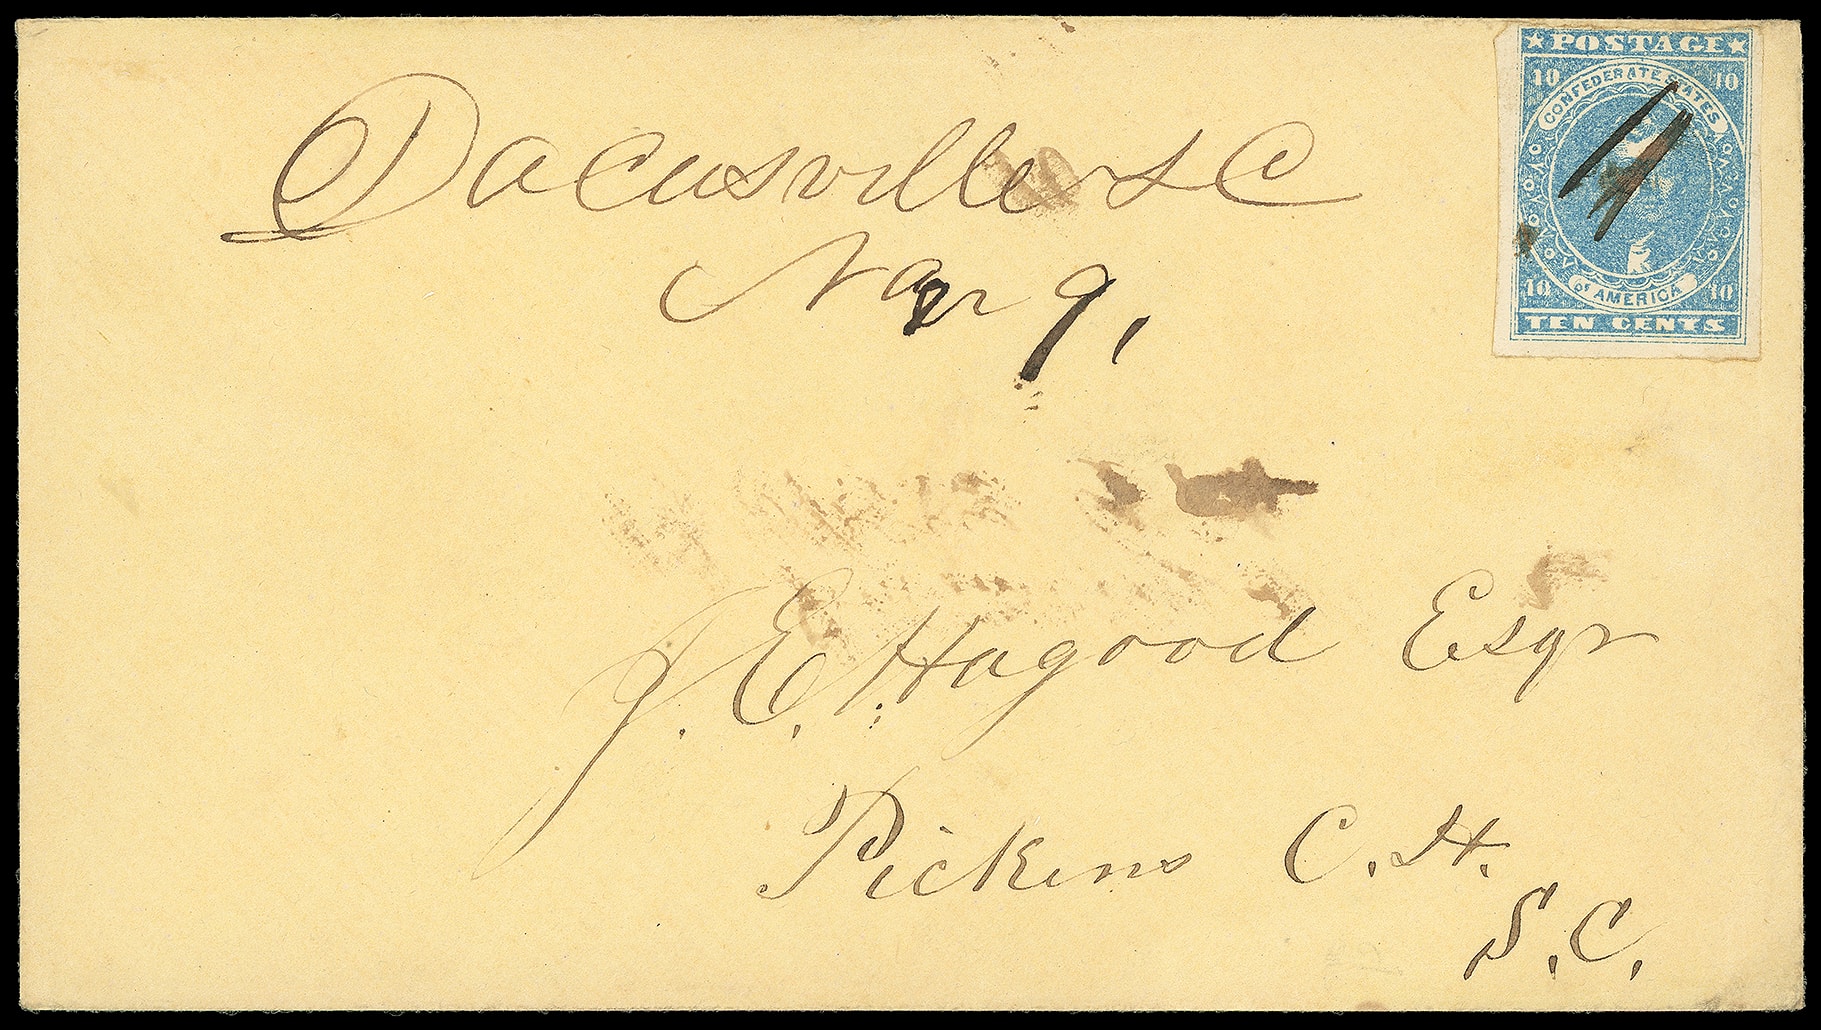 Dacusville S C
Mar 9,
★ POSTAGE ★
10 10
CONFEDERATE STATES
of AMERICA
10 10
TEN CENTS
J. E. Hagood Esqr
Pickens C. H.
S. C.